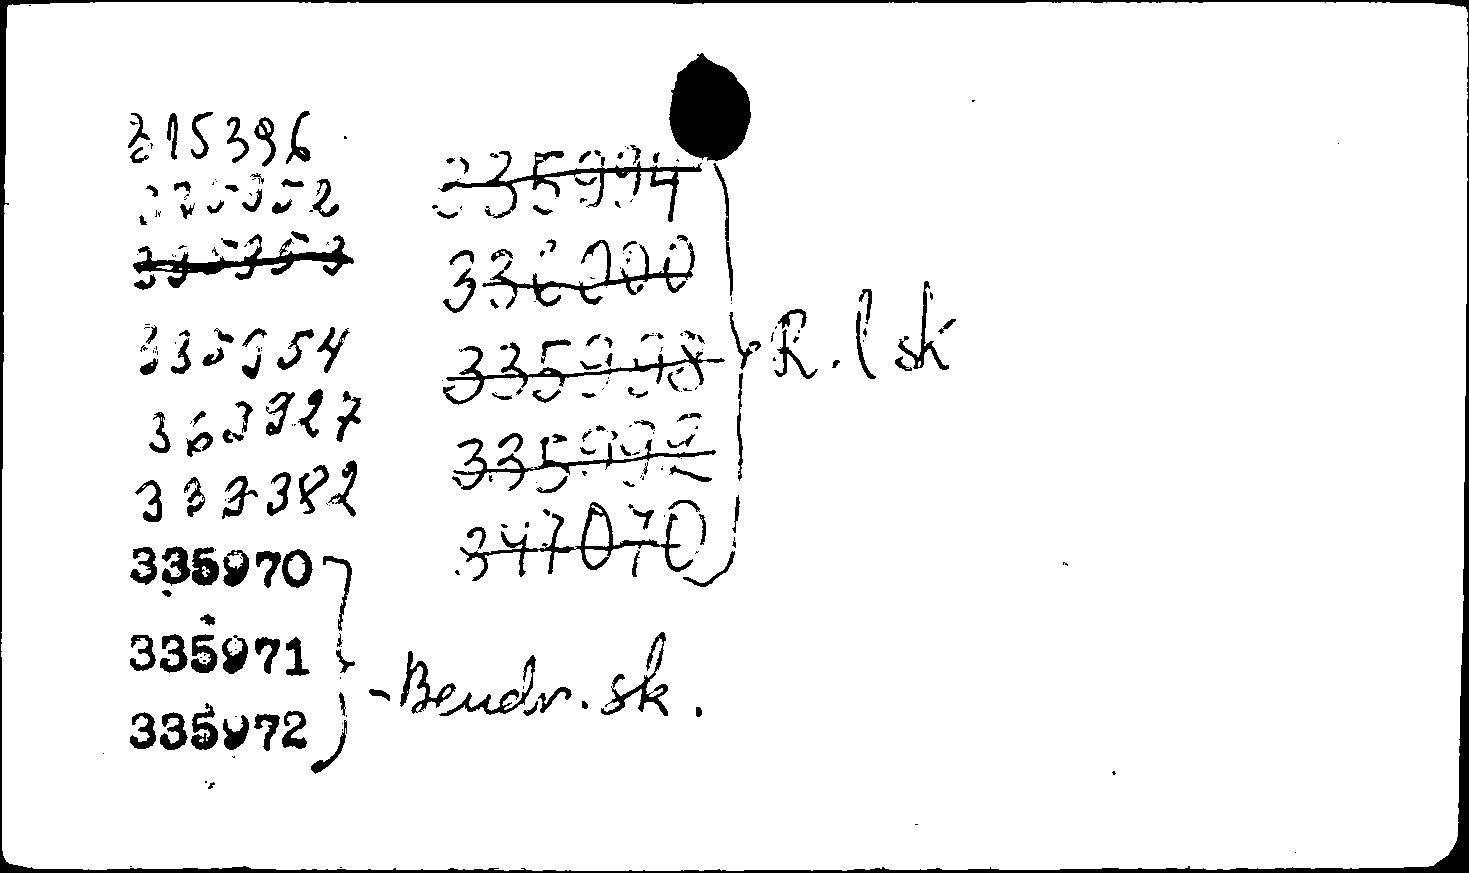 315396
335952
335953
335954
363927
339382
335970
335971
335972
-Bendr. sk.
335994
336000
335998
335992
347070
R. l sk